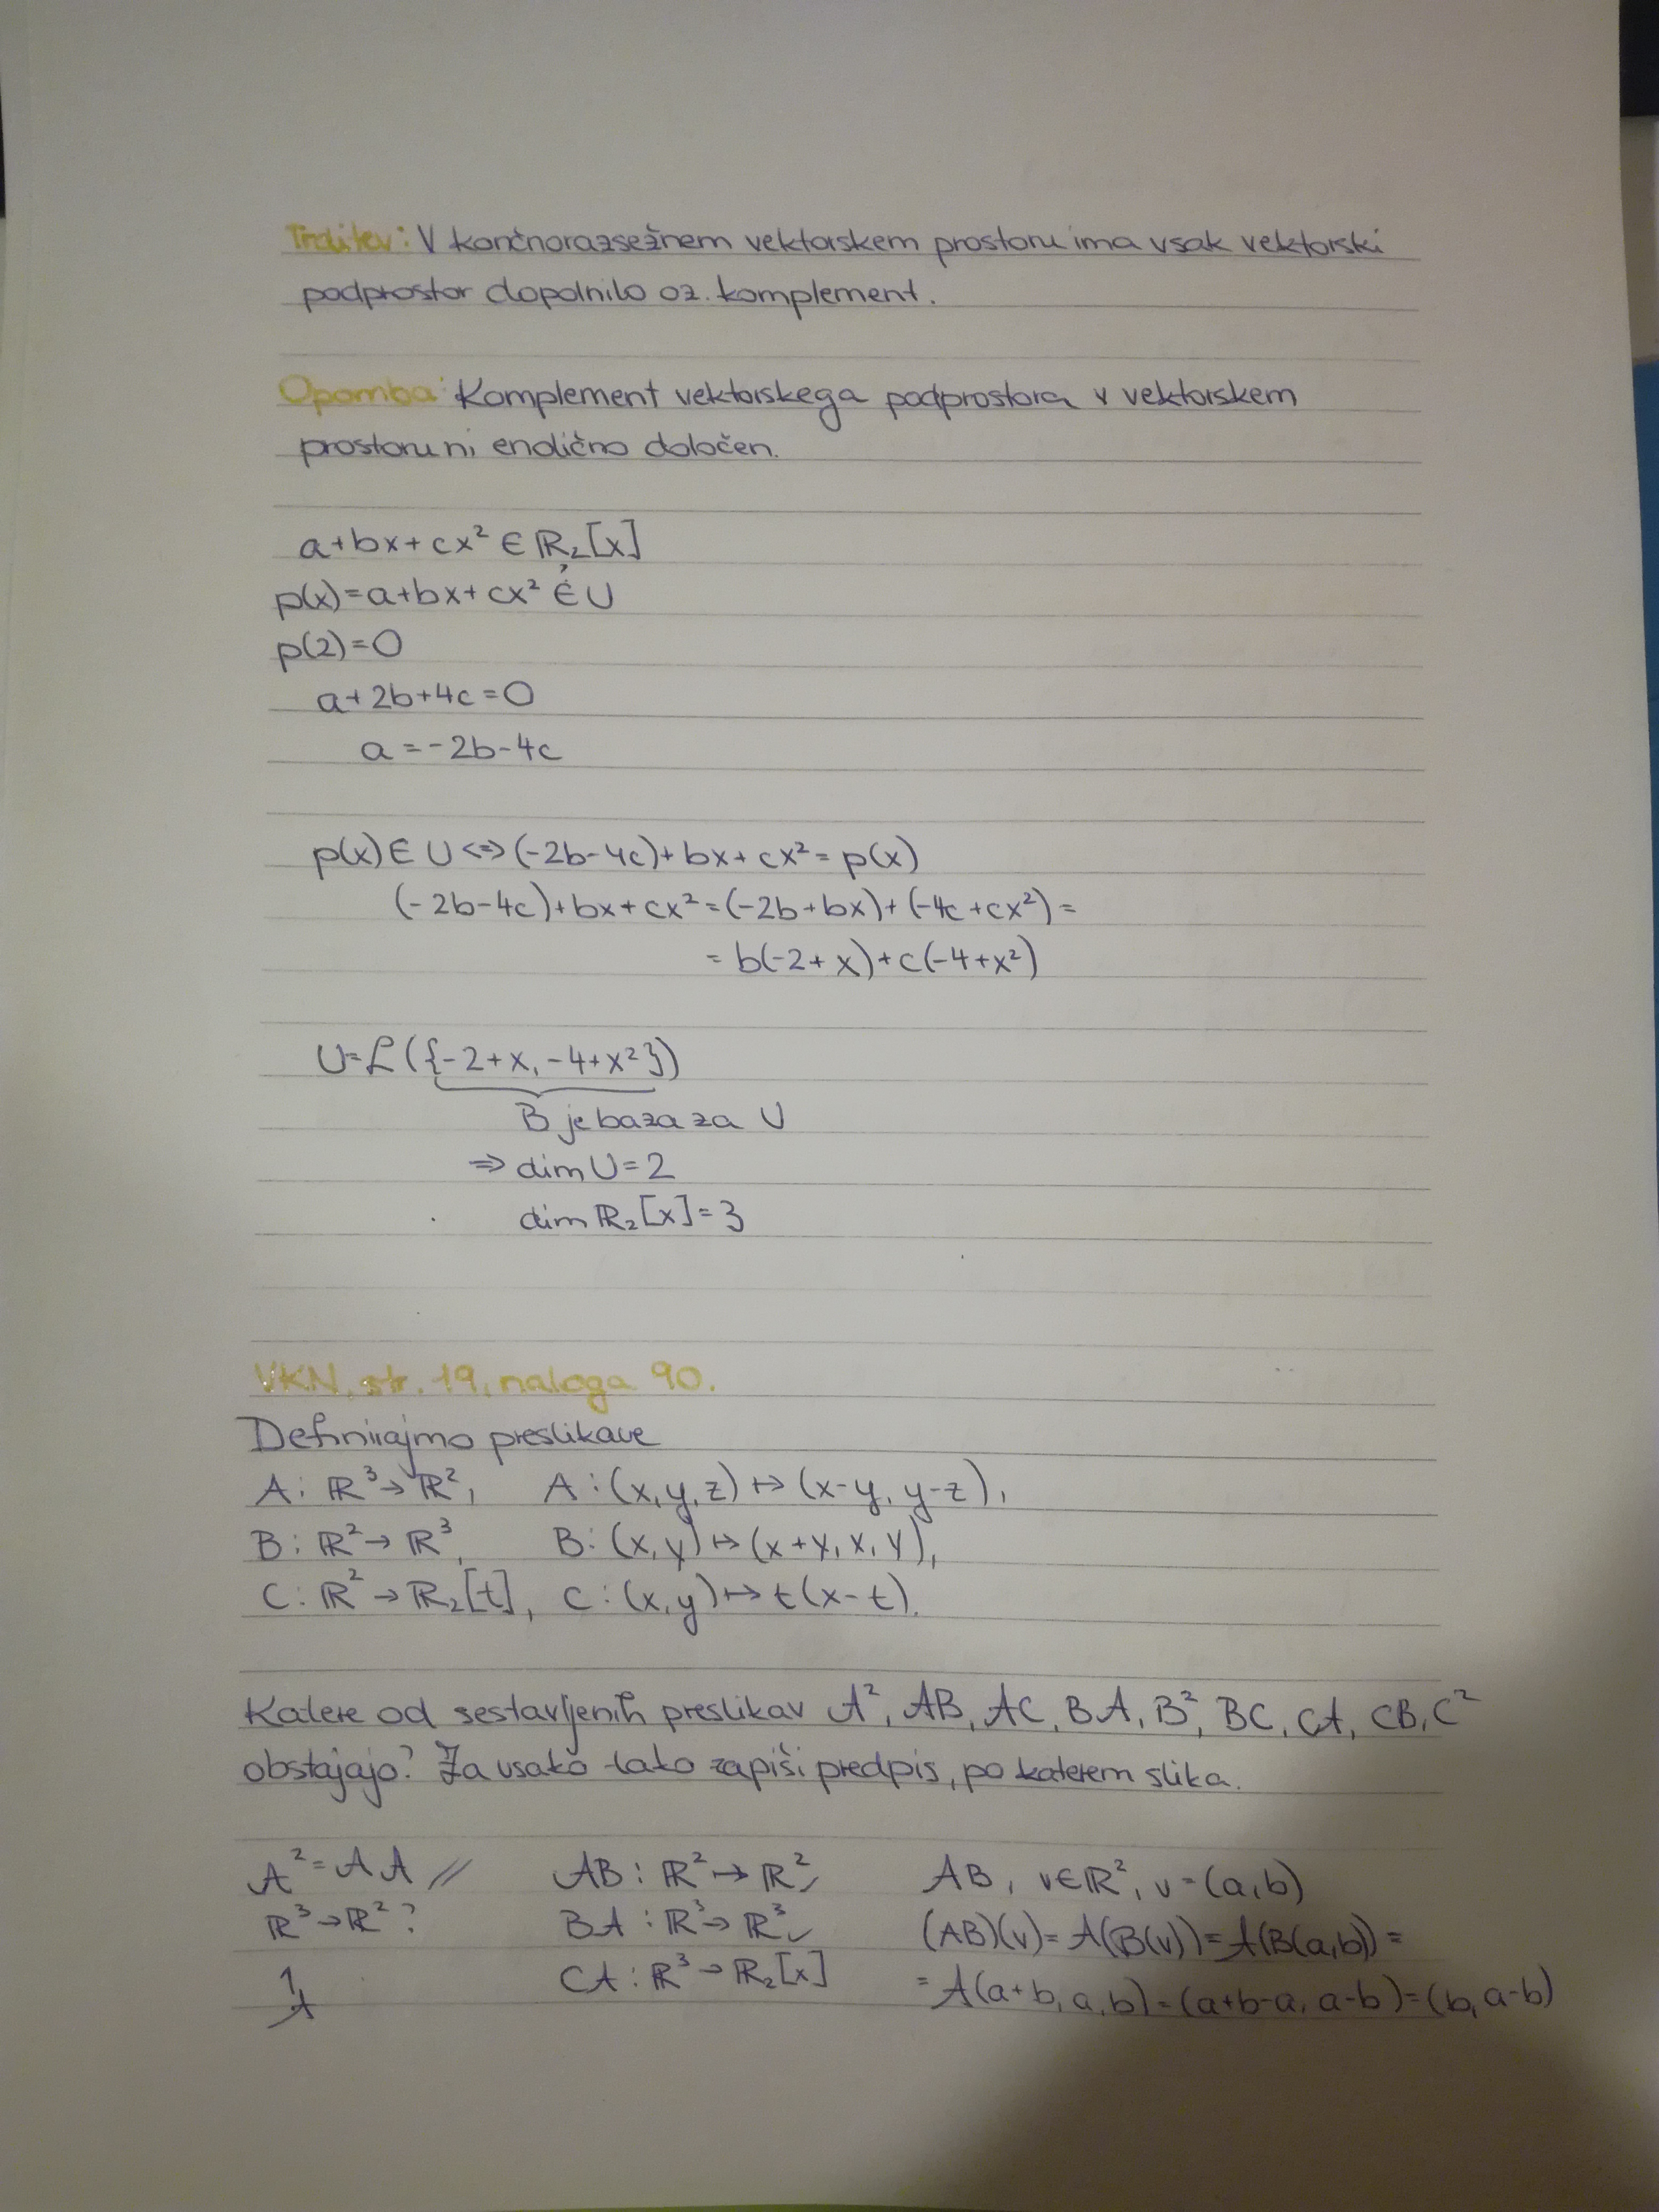 Trditev: V končnorazsežnem vektorskem prostoru ima vsak vektorski
podprostor dopolnilo oz. komplement.
Opomba: Komplement vektorskega podprostora v vektorskem
prostoru ni enolično določen.
a+bx+cx² ∈ ℝ₂[x]
p(x)=a+bx+cx² ∈ U
p(2)=0
a+2b+4c=0
a=-2b-4c
p(x)∈U⇔(-2b-4c)+bx+cx²=p(x)
(-2b-4c)+bx+cx²=(-2b+bx)+(-4c+cx²)=
=b(-2+x)+c(-4+x²)
U=ℒ({-2+x,-4+x²})
B je baza za U
⇒ dim U=2
dim ℝ₂[x]=3
VKN, str. 19, naloga 90.
Definirajmo preslikave
A: ℝ³→ℝ², A:(x,y,z)↦(x-y,y-z),
B: ℝ²→ℝ³, B:(x,y)↦(x+y,x,y),
C: ℝ²→ℝ₂[t], C:(x,y)↦t(x-t).
Katere od sestavljenih preslikav A², AB, AC, BA, B², BC, CA, CB, C²
obstajajo? Za vsako tako zapiši predpis, po katerem slika.
A²=AA // AB: ℝ²→ℝ² ✓ AB, v∈ℝ², v=(a,b)
ℝ³→ℝ²? BA: ℝ³→ℝ³ ✓ (AB)(v)=A(B(v))=A(B(a,b))=
CA: ℝ³→ℝ₂[x] =A(a+b,a,b)=(a+b-a,a-b)=(b,a-b)